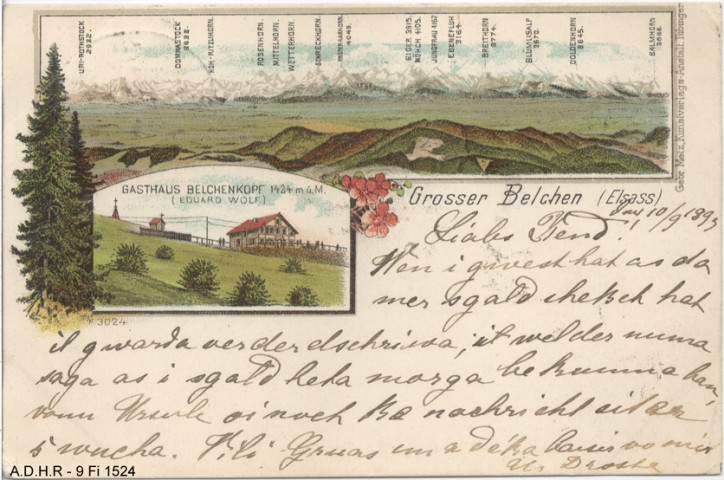 URI-ROTHSTOCK 2932.
DOMMASTOCK 2632.
HCH. RITZLIHORN.
ROSENHORN.
MITTELHORN.
WETTERHORN.
SCHRECKHORN.
4049.
EIGER 3975.
MÖNCH 4105.
JUNGFRAU 4167
EBENEFLUH 3964.
BREITHORN 3774.
BLÜMLISALP 3670.
DOLDENHORN 3645.
BALMHORN 3688.
Geor Metz, Kunstverlags-Anstalt, Tübingen
GASTHAUS BELCHENKOPF 1424 m ü.M.
(EDUARD WOLF)
Grosser Belchen (Elsass)
den 10/9 1895
Liabs
Wen i gwest hat as da
mer sgald scheksch hat
it gwarda verder dschriwa, it welder numa
saga as i sgald heta morga bekumma han,
vom Ursule oi noch ke nachricht sit
5 wucha. Vili Gruas un a von mir
3024
A.D.H.R - 9 Fi 1524